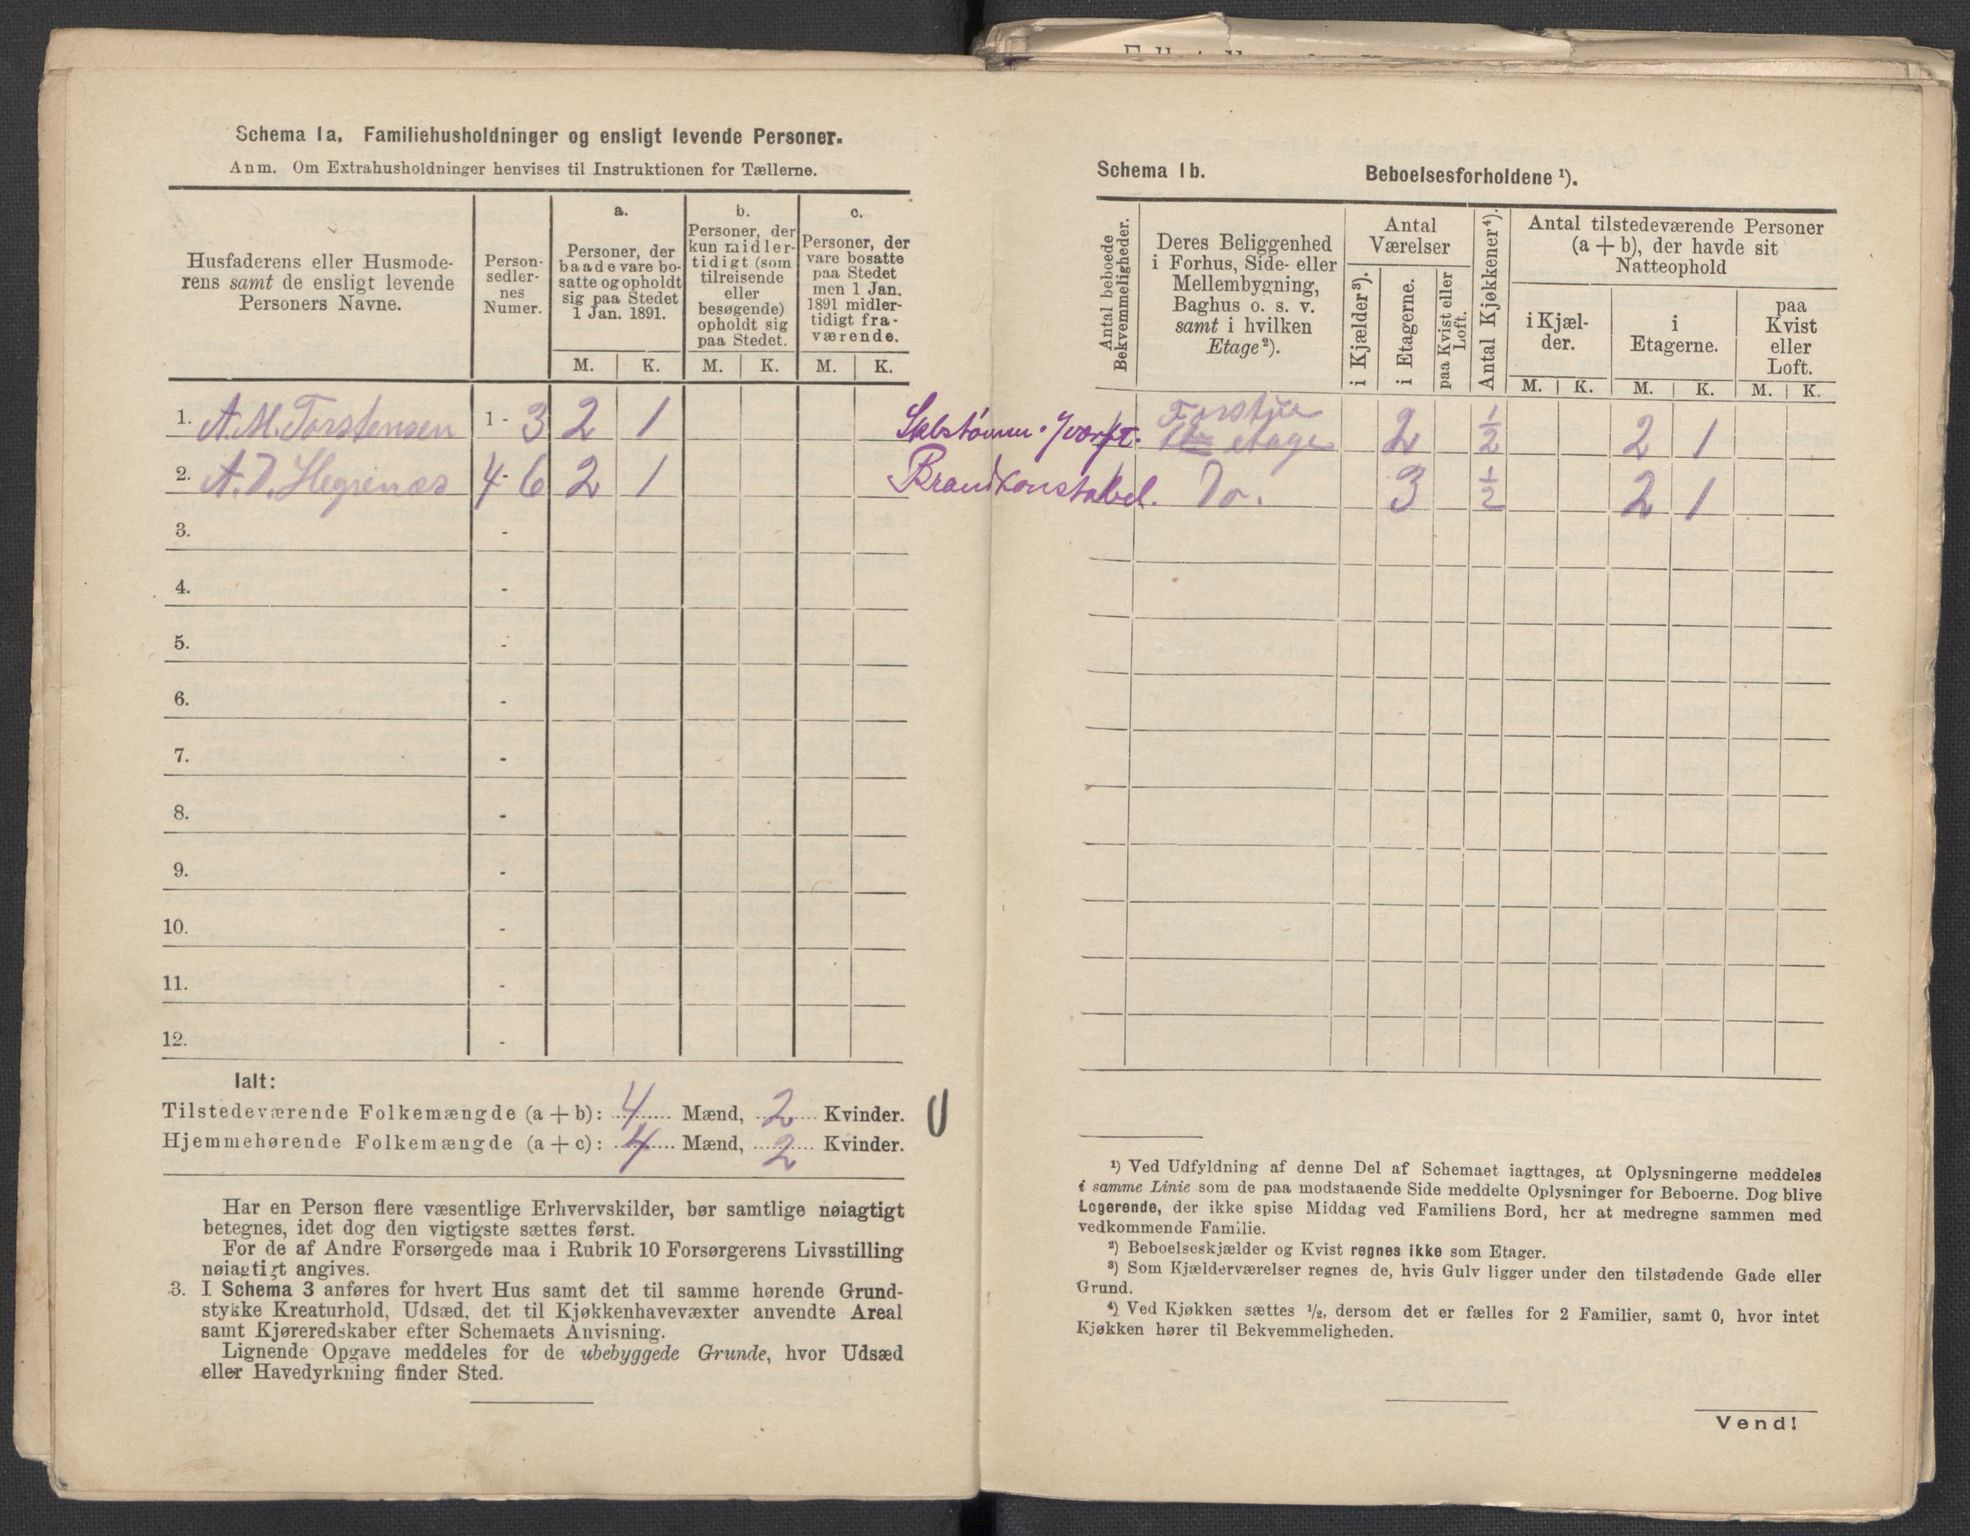 Schema 1a. Familiehusholdninger og ensligt levende Personer.
Anm. Om Extrahusholdninger henvises til Instruktionen for Tællerne.
Husfaderens eller Husmode-
rens samt de ensligt levende
Personers Navne.
Person-
sedler-
nes
Numer.
a.
Personer, der
baade vare bo-
satte og opholdt
sig paa Stedet
1 Jan. 1891.
b.
Personer, der
kun midler-
tidigt (som
tilreisende
eller
besøgende)
opholdt sig
paa Stedet.
c.
Personer, der
vare bosatte
paa Stedet
men 1 Jan.
1891 midler-
tidigt fra-
værende.
M. K. M. K. M. K.
1. A. M. Torstensen 1 - 3 2 1
2. A. D. Hegrenæs 4 - 6 2 1
3. -
4. -
5. -
6. -
7. -
8. -
9. -
10. -
11. -
12. -
Ialt:
Tilstedeværende Folkemængde (a + b): 4 Mænd, 2 Kvinder.
Hjemmehørende Folkemængde (a + c): 4 Mænd, 2 Kvinder.
Har en Person flere væsentlige Erhvervskilder, bør samtlige nøiagtigt
betegnes, idet dog den vigtigste sættes først.
For de af Andre Forsørgede maa i Rubrik 10 Forsørgerens Livsstilling
nøiagtigt angives.
3. I Schema 3 anføres for hvert Hus samt det til samme hørende Grund-
stykke Kreaturhold, Udsæd, det til Kjøkkenhavevæxter anvendte Areal
samt Kjøreredskaber efter Schemaets Anvisning.
Lignende Opgave meddeles for de ubebyggede Grunde, hvor Udsæd
eller Havedyrkning finder Sted.
Schema 1b. Beboelsesforholdene ¹).
Antal beboede
Bekvemmeligheder.
Deres Beliggenhed
i Forhus, Side- eller
Mellembygning,
Baghus o. s. v.
samt i hvilken
Etage²).
Antal
Værelser
i Kjælder³).
i Etagerne.
paa Kvist eller
Loft.
Antal Kjøkkener⁴).
Antal tilstedeværende Personer
(a + b), der havde sit
Natteophold
i Kjæl-
der.
i
Etagerne.
paa
Kvist
eller
Loft.
M. K. M. K. M. K.
etage 2 1/2 2 1
Brandkonstabel. Do. 3 1/2 2 1
¹) Ved Udfyldning af denne Del af Schemaet iagttages, at Oplysningerne meddeles
i samme Linie som de paa modstaaende Side meddelte Oplysninger for Beboerne. Dog blive
Logerende, der ikke spise Middag ved Familiens Bord, her at medregne sammen med
vedkommende Familie.
²) Beboelseskjælder og Kvist regnes ikke som Etager.
³) Som Kjælderværelser regnes de, hvis Gulv ligger under den tilstødende Gade eller
Grund.
⁴) Ved Kjøkken sættes ½, dersom det er fælles for 2 Familier, samt 0, hvor intet
Kjøkken hører til Bekvemmeligheden.
Vend!